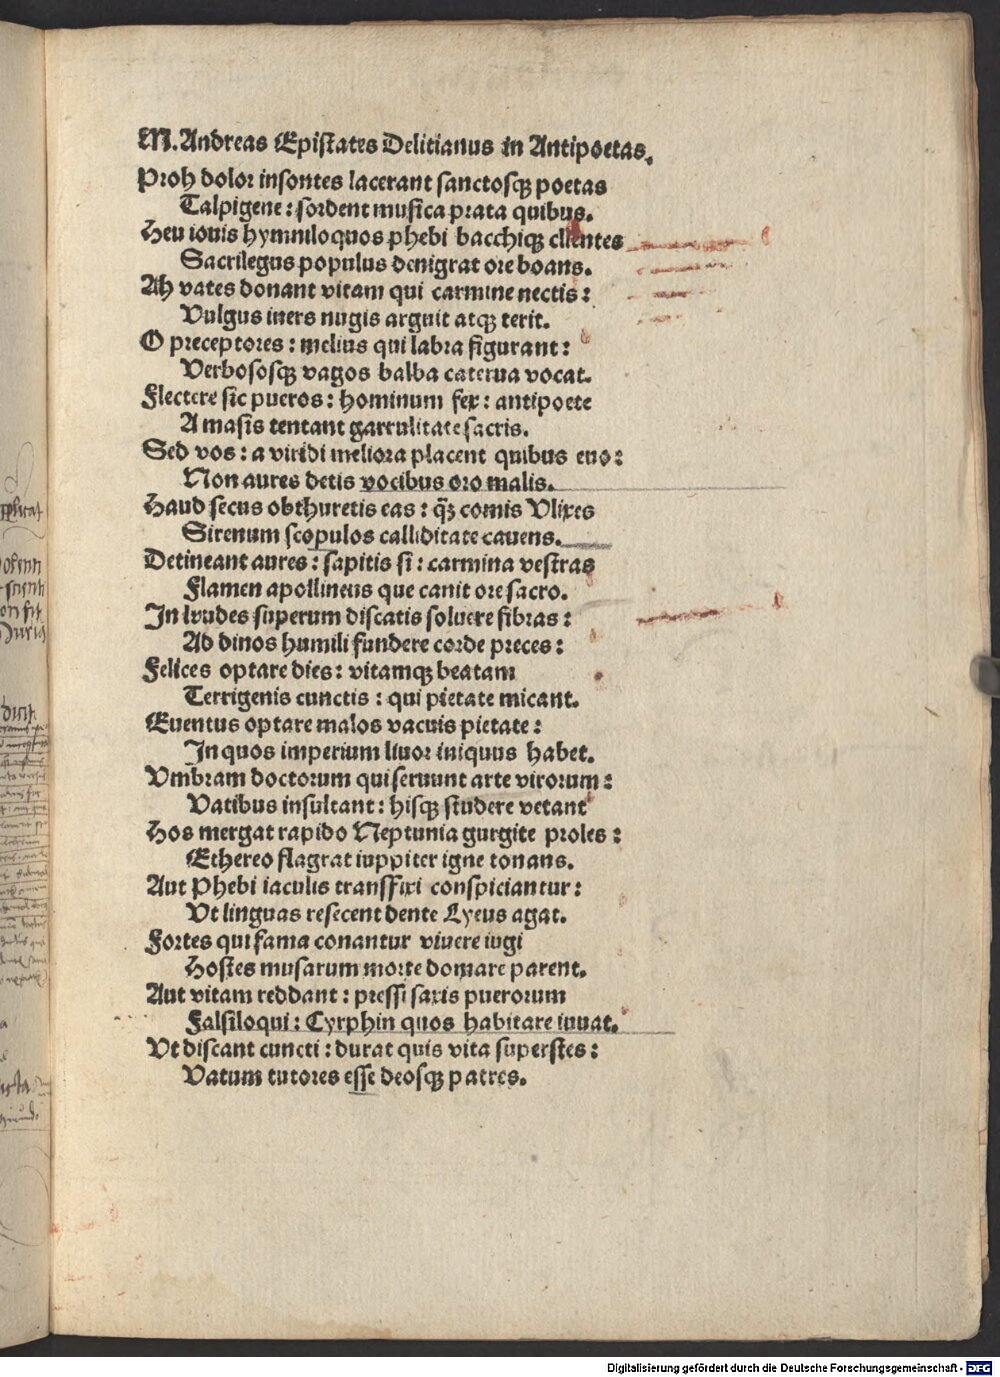 M. Andreas Epistates Delitianus in Antipoetas.
Proh dolor insontes lacerant sanctosqꝫ poetas
Talpigene : sordent musica prata quibus.
Heu iouis hymniloquos phebi bacchiqꝫ clientes
Sacrilegus populus denigrat ore boans.
Ah vates donant vitam qui carmine nectis :
Vulgus iners nugis arguit atqꝫ terit.
O preceptores : melius qui labra figurant :
Verbososqꝫ vagos balba caterua vocat.
Flectere sic pueros : hominum fex : antipoete
A masis tentant garrulitate sacris.
Sed vos : a viridi meliora placent quibus euo :
Non aures detis vocibus oro malis.
Haud secus obthuretis eas : qꝫ comis Vlixes
Sirenum scopulos calliditate cauens.
Detineant aures : sapitis si : carmina vestras
Flamen apollineus que canit ore sacro.
In laudes superum discatis soluere fibras :
Ad dinos humili fundere corde preces :
Felices optare dies : vitamqꝫ beatam
Terrigenis cunctis : qui pietate micant.
Euentus optare malos vacuis pietate :
In quos imperium liuor iniquus habet.
Vmbram doctorum qui seruunt arte virorum :
Vatibus insultant : hisqꝫ studere vetant
Hos mergat rapido Neptunia gurgite proles :
Ethereo flagrat iuppiter igne tonans.
Aut Phebi iaculis transffixi conspiciantur :
Vt linguas resecent dente Lyeus agat.
Fortes qui fama conantur viuere iugi
Hostes musarum morte domare parent.
Aut vitam reddant : pressi saxis puerorum
Falsiloqui : Cyrphin quos habitare iuuat.
Vt discant cuncti : durat quis vita superstes :
Vatum tutores esse deosqꝫ patres.
Digitalisierung gefördert durch die Deutsche Forschungsgemeinschaft - DFG